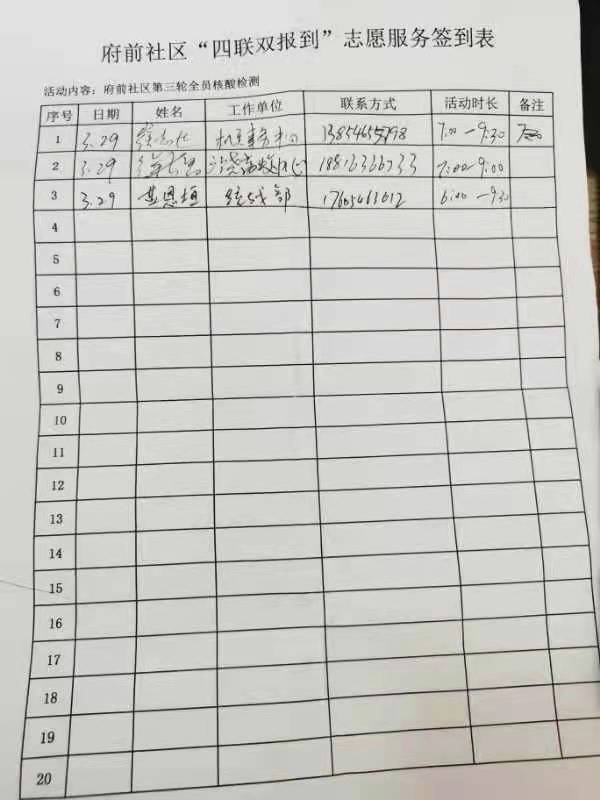 府前社区“四联双报到”志愿服务签到表
活动内容：府前社区第三轮全员核酸检测
序号 日期 姓名 工作单位 联系方式 活动时长 备注
1 3.29 7:00-9:30
2 3.29 7:00-9:00
3 3.29 恩恒 统战部 17605463612 6:00-9:30
4
5
6
7
8
9
10
11
12
13
14
15
16
17
18
19
20